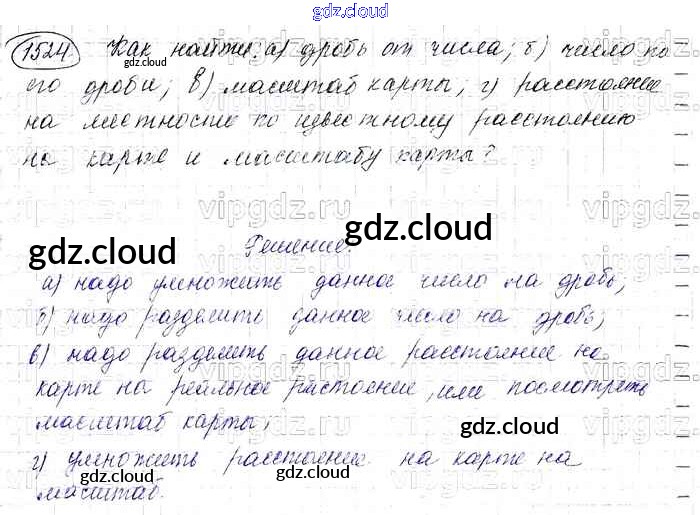 gdz.cloud
1524 Как найти: а) дробь от числа; б) число по
его дроби; в) масштаб карты; г) расстояние
на местности по известному расстоянию
на карте и масштабу карты?
gdz.cloud
gdz.cloud
vipgdz.ru vipgdz.ru vipgdz.ru
gdz.cloud
gdz.cloud
Решение:
а) надо умножить данное число на дробь;
б) надо разделить данное число на дробь;
в) надо разделить данное расстояние на
карте на реальное расстояние, или посмотреть
масштаб карты;
gdz.cloud
г) умножить расстояние на карте на
масштаб.
gdz.cloud
gdz.cloud